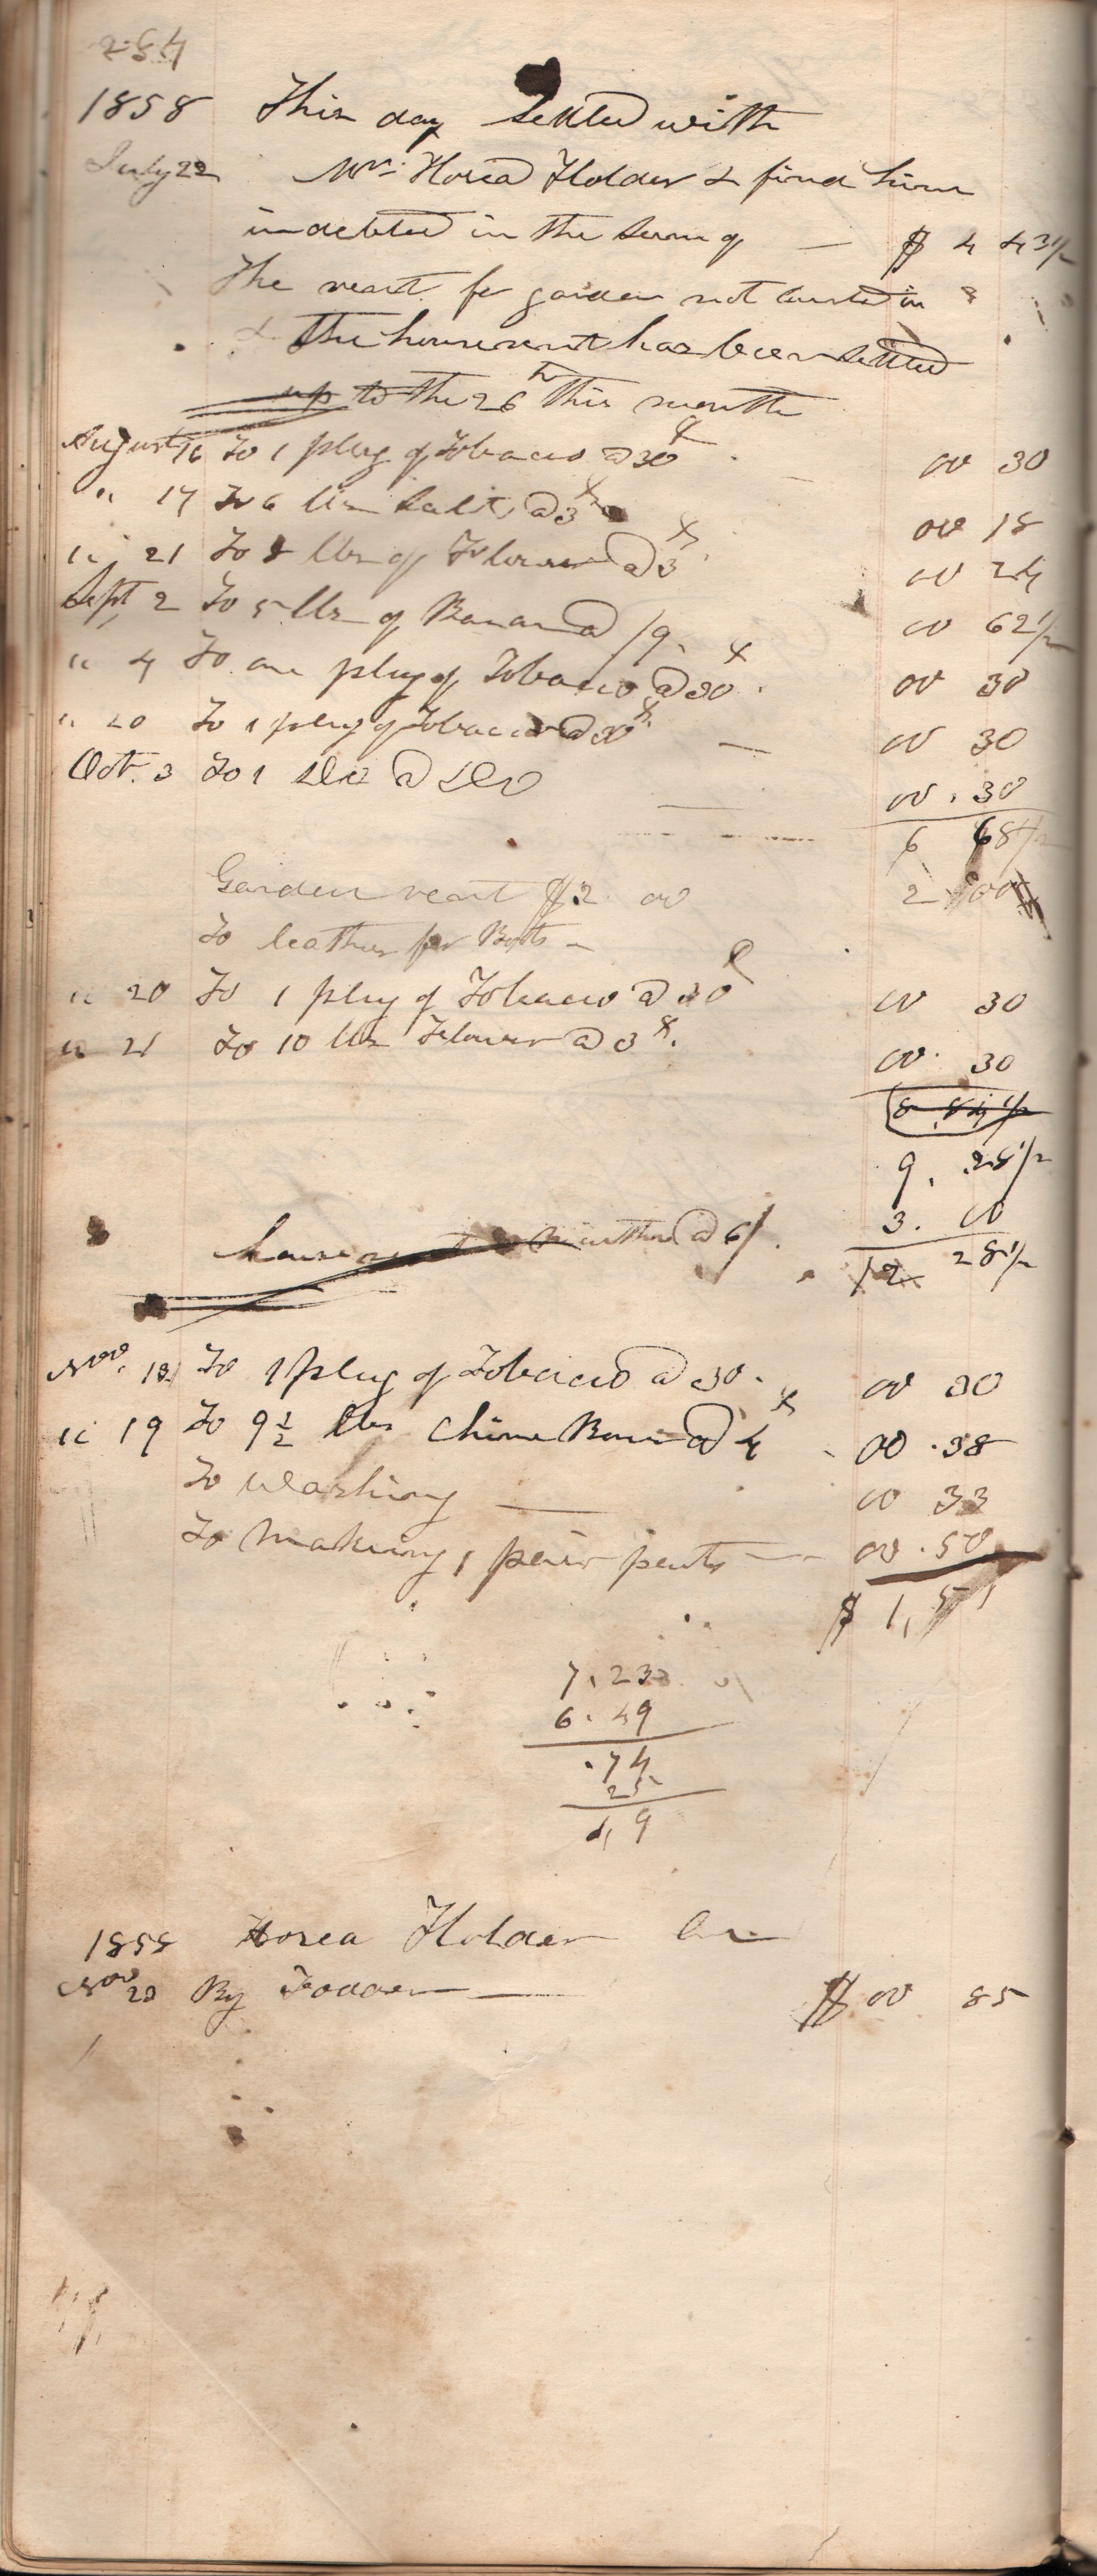 284
1858 This day Settled with
July 22 Mr. Hosea Holder & find him
indebted in the sum of — $ 4 43 1/2
The reant for garden not counted in
& the houserent has been settled
up to the 26th this month
August 16 To 1 plug of Tobacco @ 30 00 30
" 17 To 6 lbs Salt @ 3 00 18
" 21 To 8 lbs of Flower @ 3 00 24
Sept 2 To 5 lbs of Bacan @ /9 00 62 1/2
" 4 To one plug of Tobacco @ 30 00 30
" 20 To 1 plug of Tobacco @ 30 — 00 30
Oct. 3 To 1 Do @ Do 00 . 30
6 68
Garden reant $2 00 2 00
To leather for Boots —
" 20 To 1 plug of Tobacco @ 30 00 30
" 21 To 10 lbs Flower @ 3 00 30
9. 28 1/2
3. 00
house @ 6/. 12 28 1/2
Nov. 13 To 1 plug of Tobacco @ 30 00 30
" 19 To 9 1/2 lbs Chine Bone @ 4 00 . 38
To Washing — 00 33
To Making 1 pair pents — 00 . 50
$ 1, 51
7.23
6.49
.74
25
49
1858 Hosea Holder Cr
Nov 20 By Fodder — $ 00 85